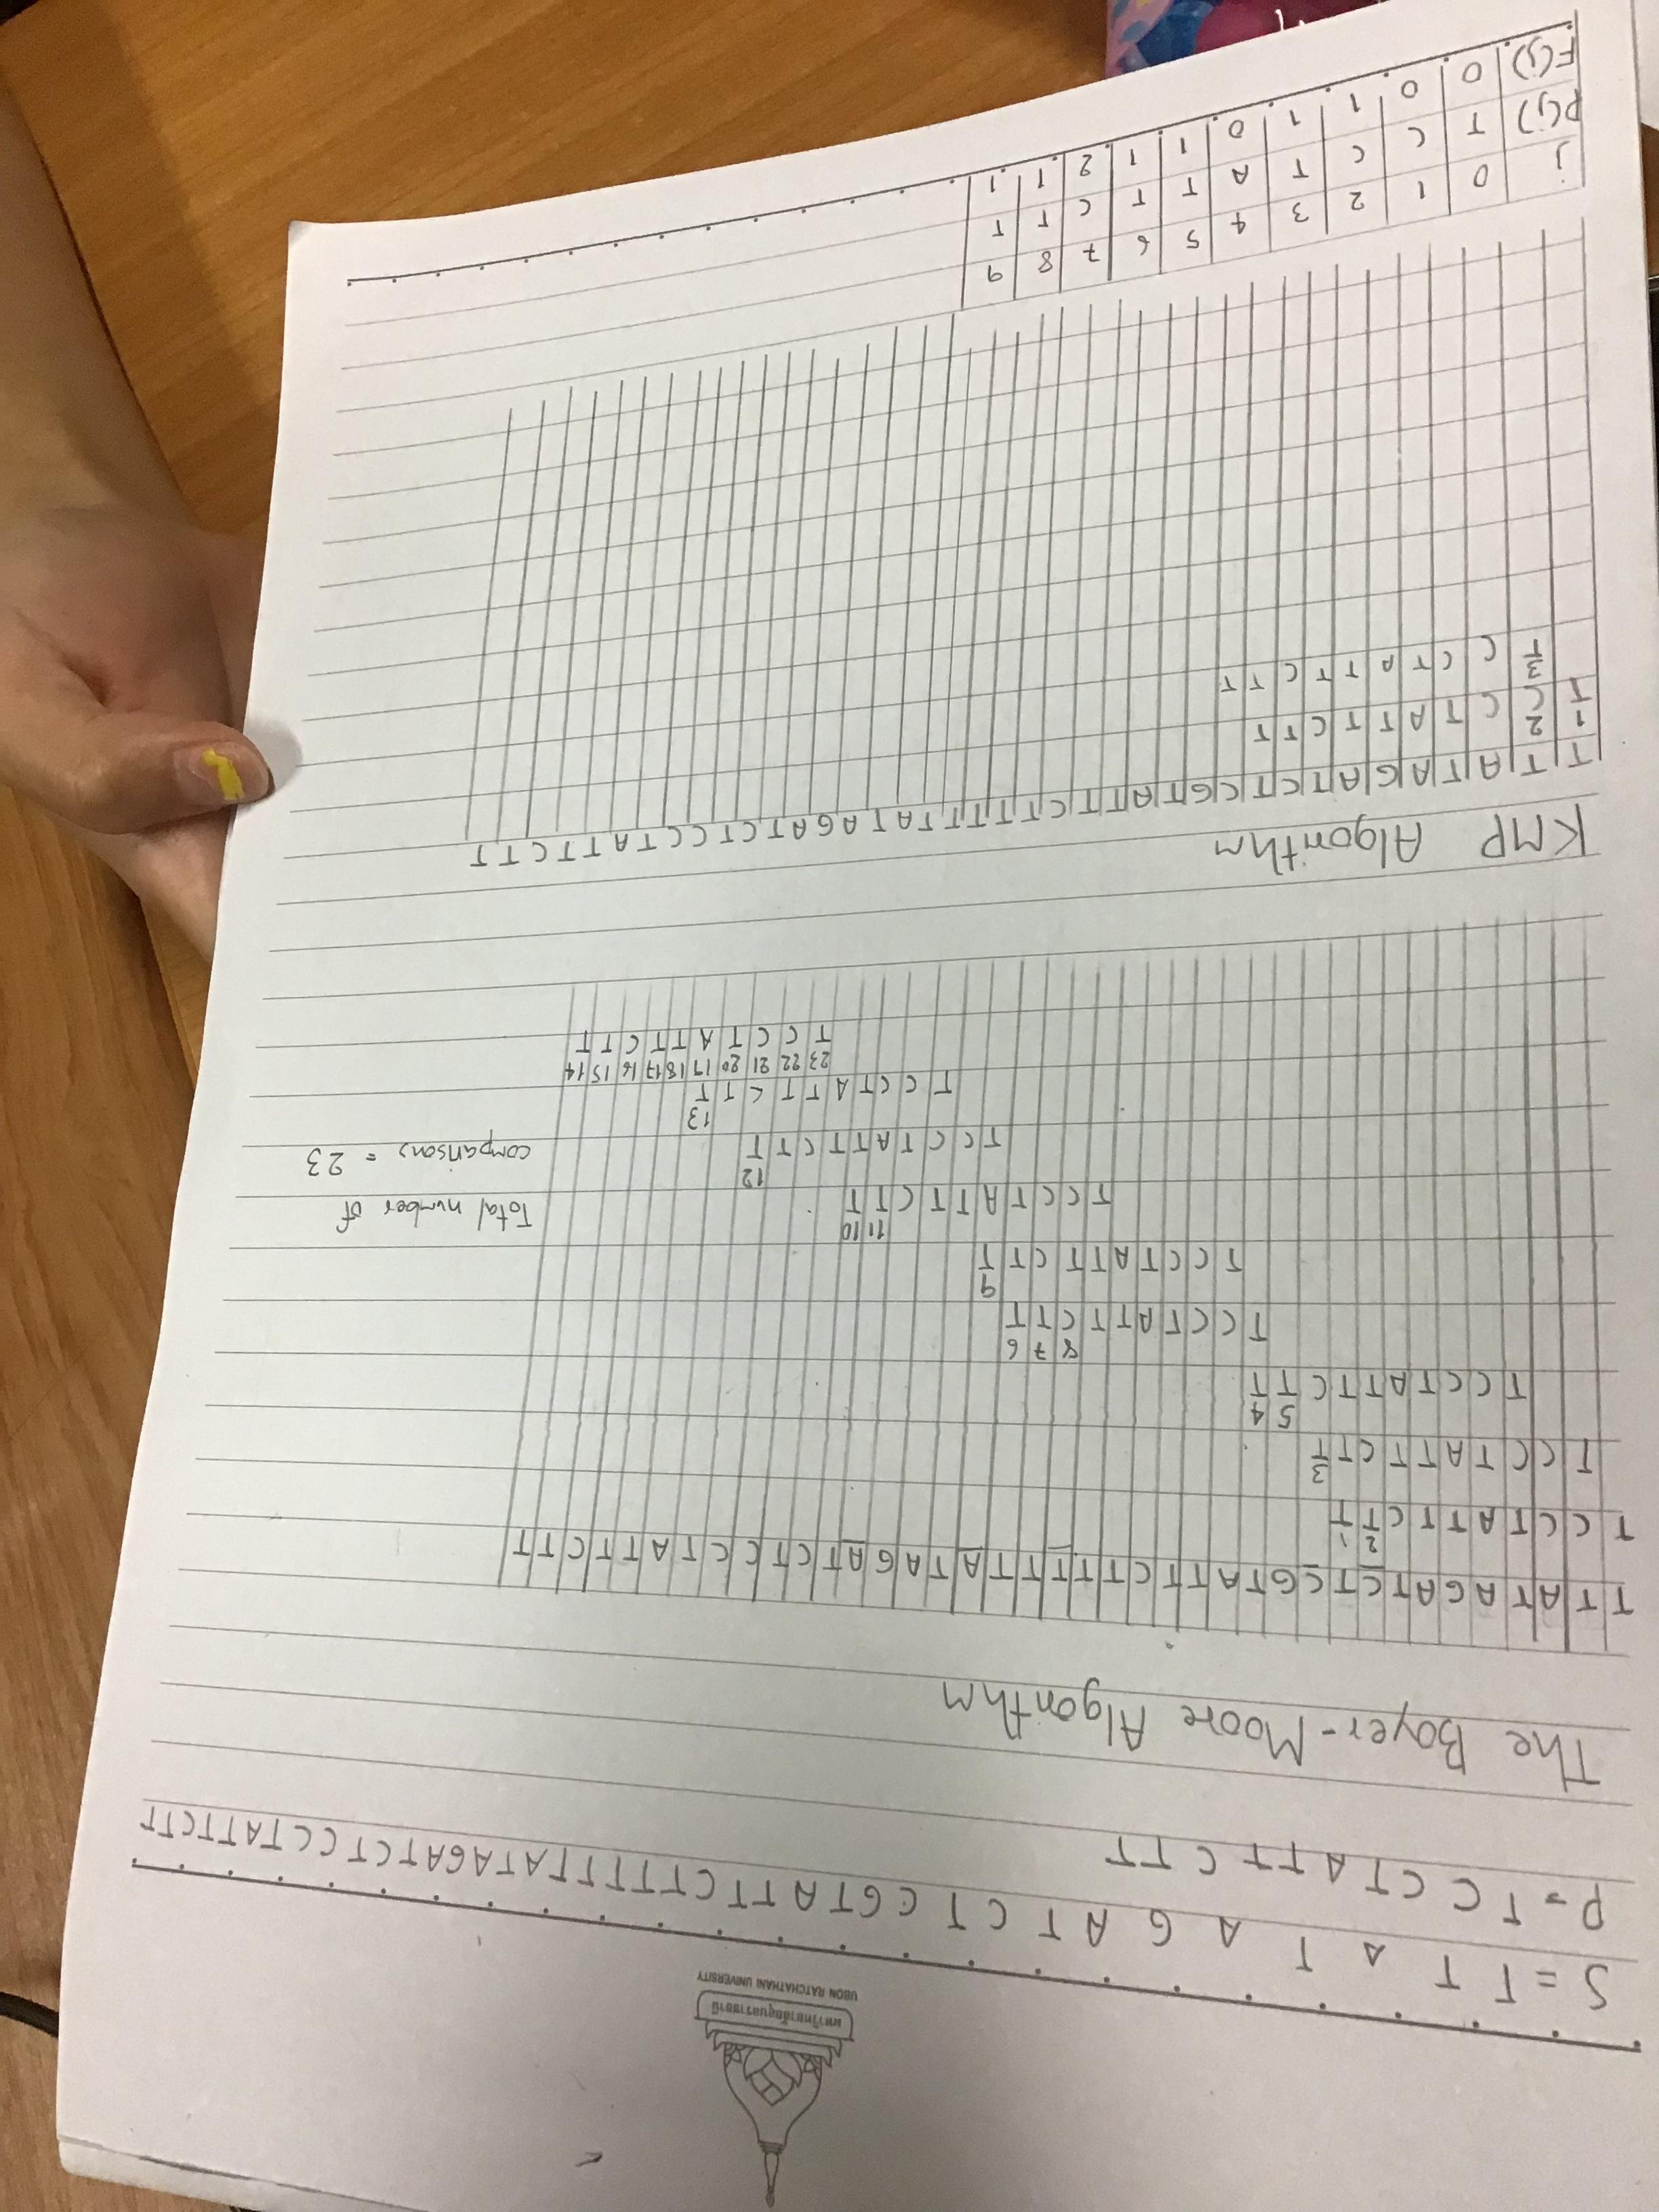 มหาวิทยาลัยอุบลราชธานี
UBON RATCHATHANI UNIVERSITY
S = T T A T A G A T C T C G T A T T C T T T T T A T A G A T C T C C T A T T C T T
P = T C C T A T T C T T
The Boyer-Moore Algorithm
T T A T A G A T C T C G T A T T C T T T T T A T A G A T C T C C T A T T C T T
2 1
T C C T A T T C T T
3
T C C T A T T C T T
5 4
T C C T A T T C T T
8 7 6
T C C T A T T C T T
9
T C C T A T T C T T
11 10
T C C T A T T C T T
Total number of
12
T C C T A T T C T T
comparisons = 23
13
T C C T A T T C T T
23 22 21 20 19 18 17 16 15 14
T C C T A T T C T T
KMP Algorithm
T T A T A G A T C T C G T A T T C T T T T T A T A G A T C T C C T A T T C T T
1 2
T C C T A T T C T T
3
T C C T A T T C T T
j 0 1 2 3 4 5 6 7 8 9
P(j) T C C T A T T C T T
F(j) 0 0 1 1 0 1 1 2 1 1